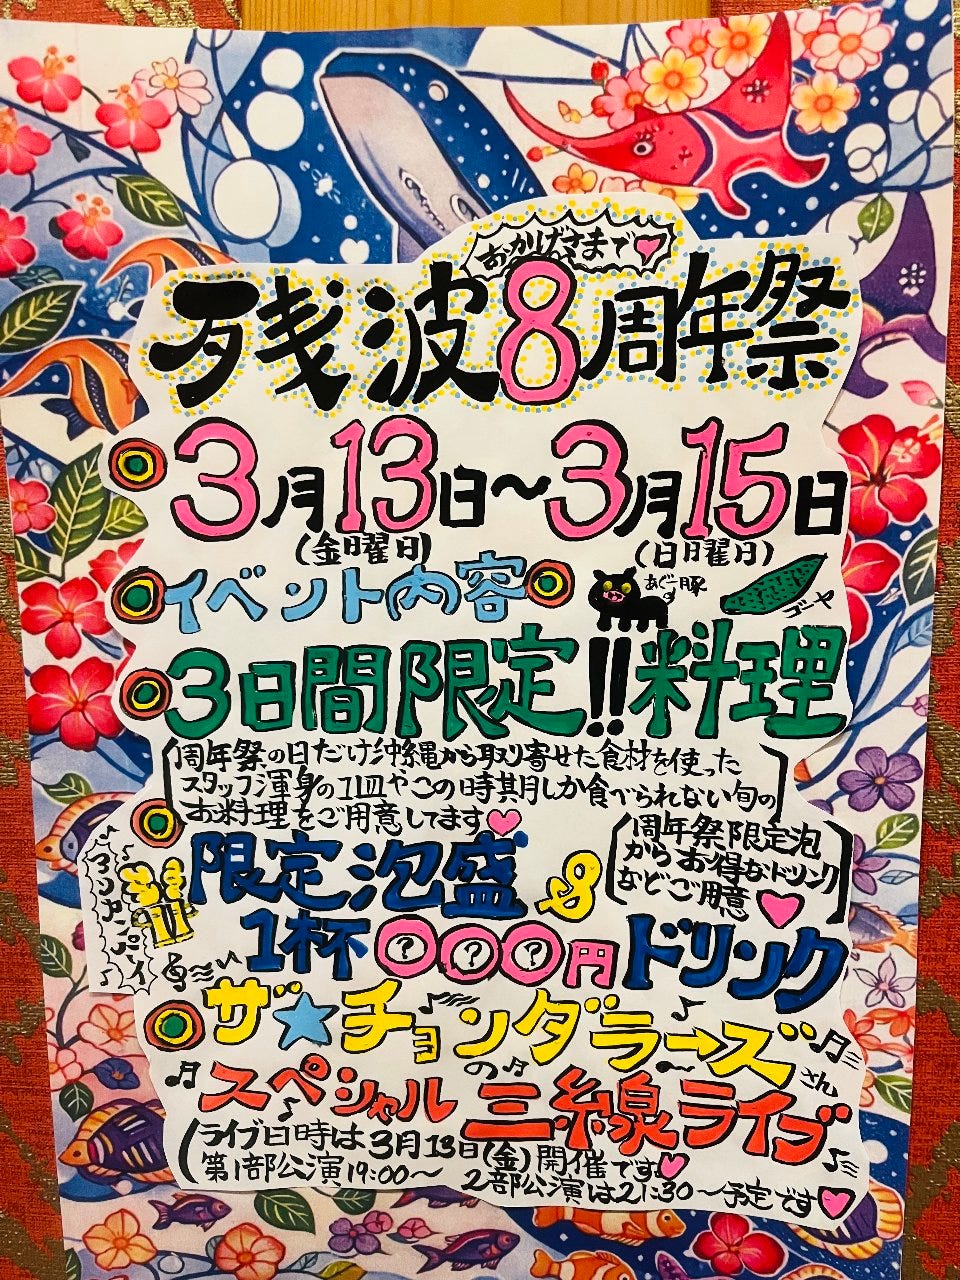 おかげさまで
残波8周年祭
3月13日～3月15日
(金曜日)
(日曜日)
イベント内容
あぐー豚
ゴーヤ
3日間限定!!料理
周年祭の日だけ沖縄から取り寄せた食材を使った
スタッフ渾身の1皿やこの時期しか食べられない旬の
お料理をご用意してます
限定泡盛&
1杯???円ドリンク
周年祭限定泡
からお得なドリンク
などご用意
ザ★チョンダラーズさん
の
スペシャル三線ライブ
(ライブ日時は3月13日(金)開催です
第1部公演19:00～2部公演は21:30～予定です